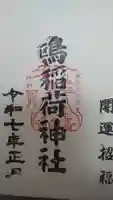 開運招福
鴎稲荷神社
令和七年正月